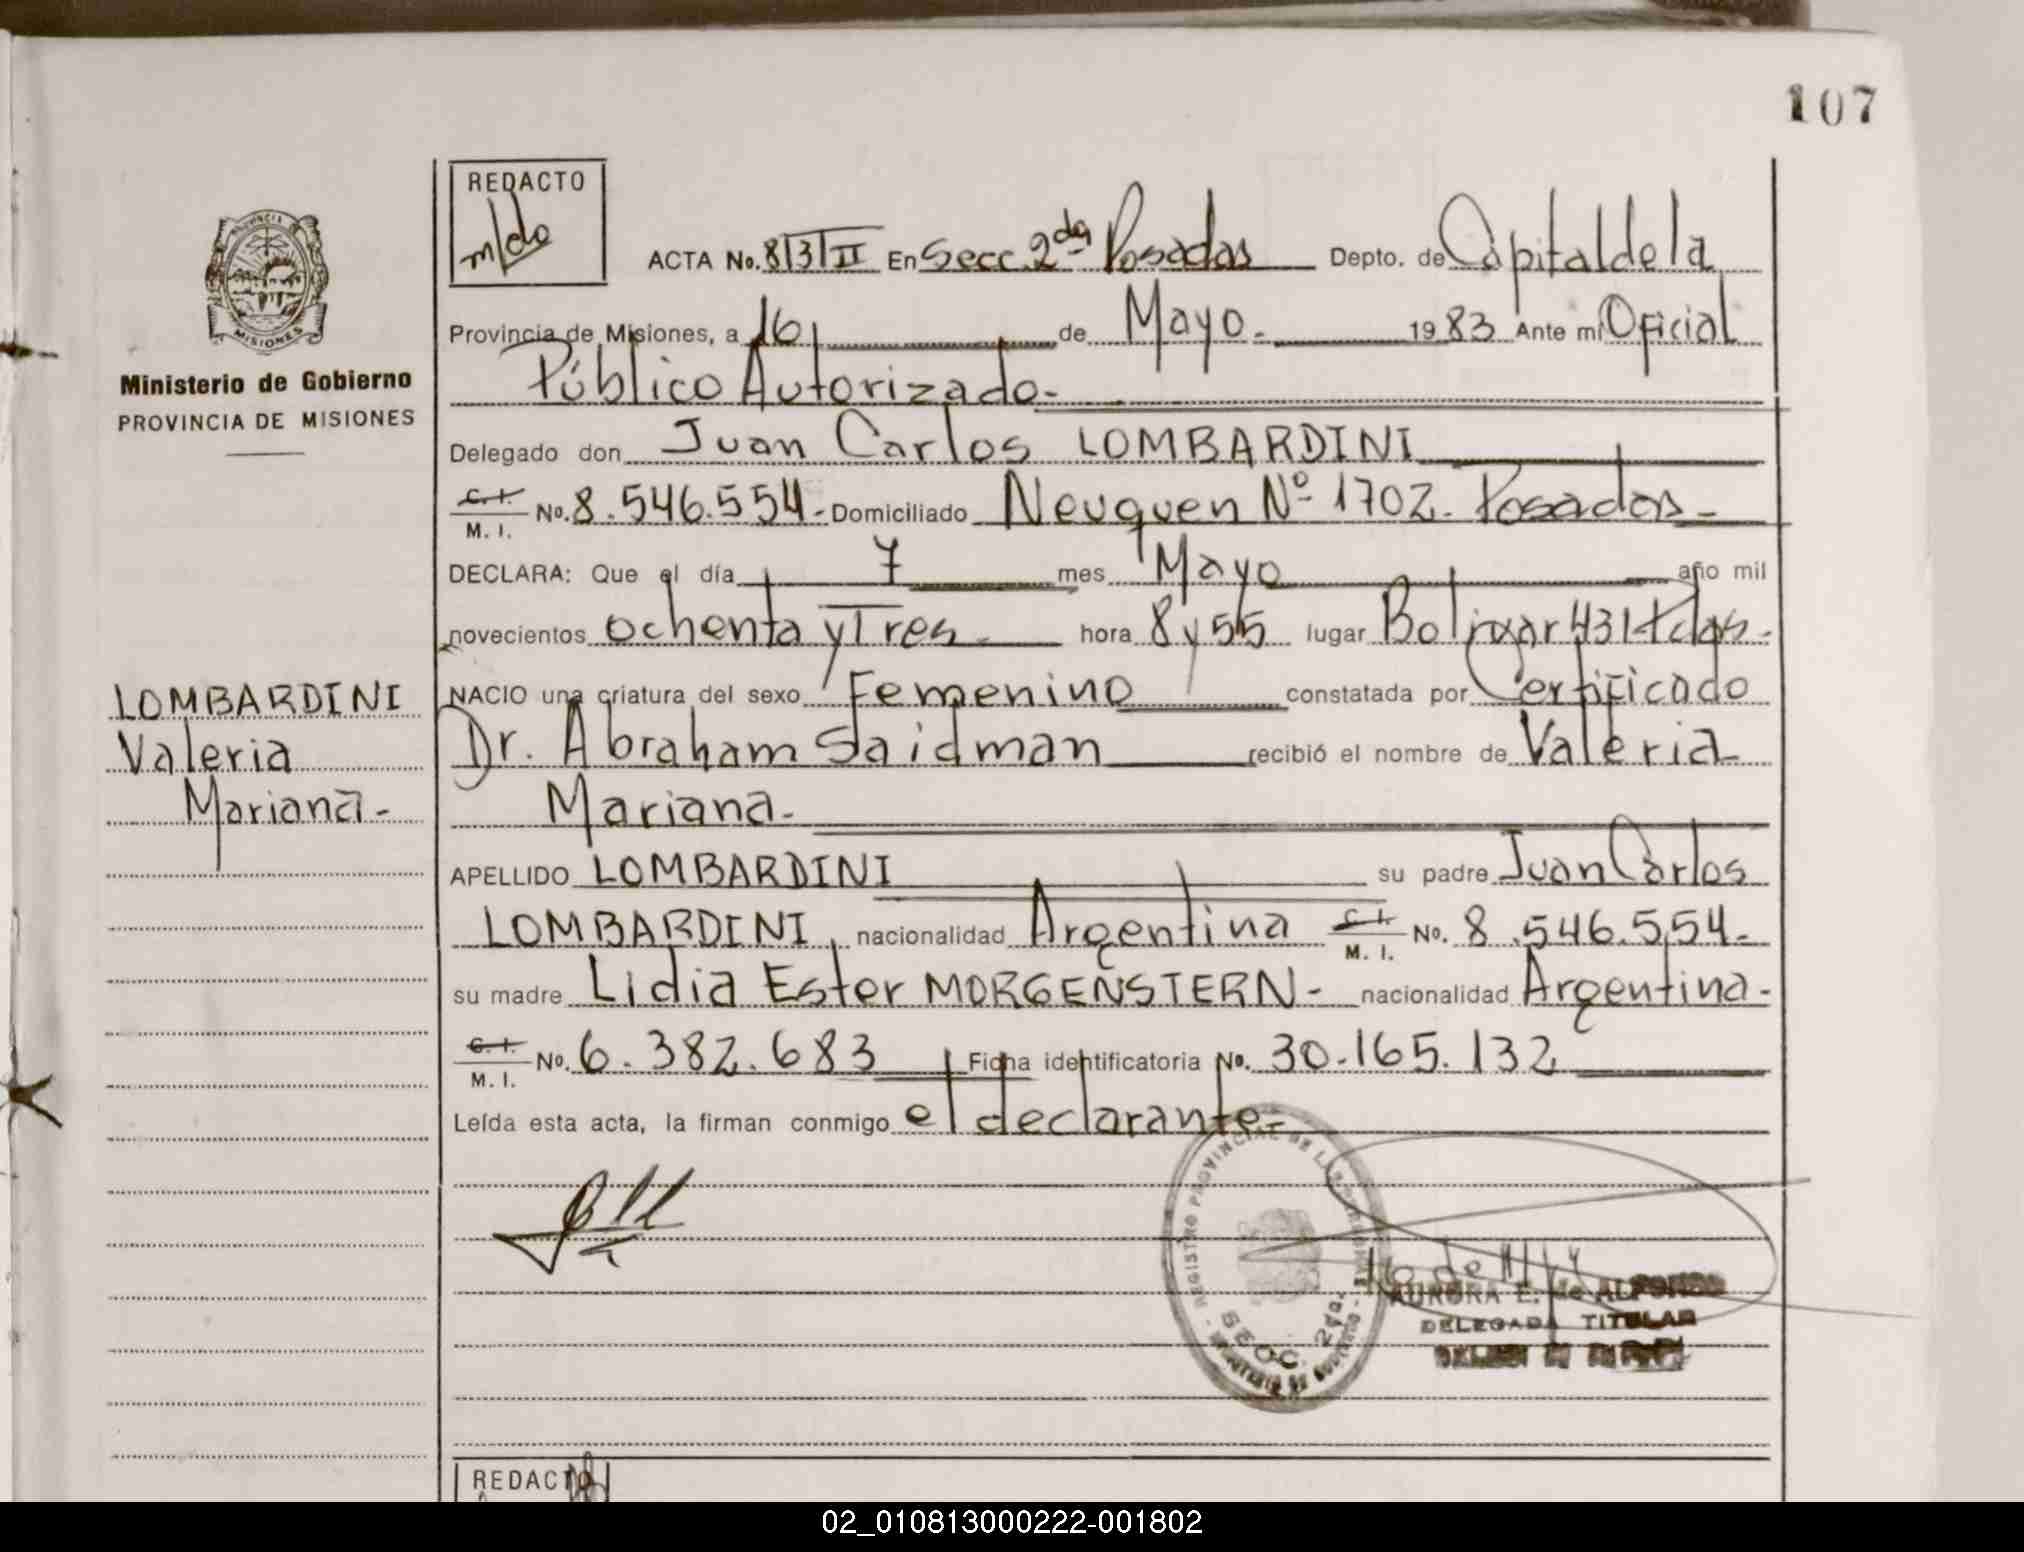 107
REDACTO
ACTA No. 813/II En Secc. 2da Posadas Depto. de Capital de la
Provincia de Misiones, a 16 de Mayo.- 1983 Ante mí Oficial
Público Autorizado.-
Ministerio de Gobierno
PROVINCIA DE MISIONES
Delegado don Juan Carlos LOMBARDINI
C. I.
M. I. No. 8.546.554.- Domiciliado Neuquen Nº 1702. Posadas-
DECLARA: Que el día 7 mes Mayo año mil
novecientos ochenta y Tres.- hora 8 y 55 lugar Bolivar 431-Pdas-
NACIO una criatura del sexo Femenino constatada por Certificado
Dr. Abraham Saidman recibió el nombre de Valeria
Mariana.-
LOMBARDINI
Valeria
Mariana-
APELLIDO LOMBARDINI su padre Juan Carlos
LOMBARDINI, nacionalidad Argentina C. I.
M. I. No. 8.546.554-
su madre Lidia Ester MORGENSTERN- nacionalidad Argentina-
C. I.
M. I. No. 6.382.683 Ficha identificatoria No. 30.165.132
Leída esta acta, la firman conmigo el declarante-
REGISTRO PROVINCIAL DE LAS PERSONAS
SECC. 2da.
AURORA E. de ALFONSO
DELEGADA TITULAR
REDACTO
02_010813000222-001802